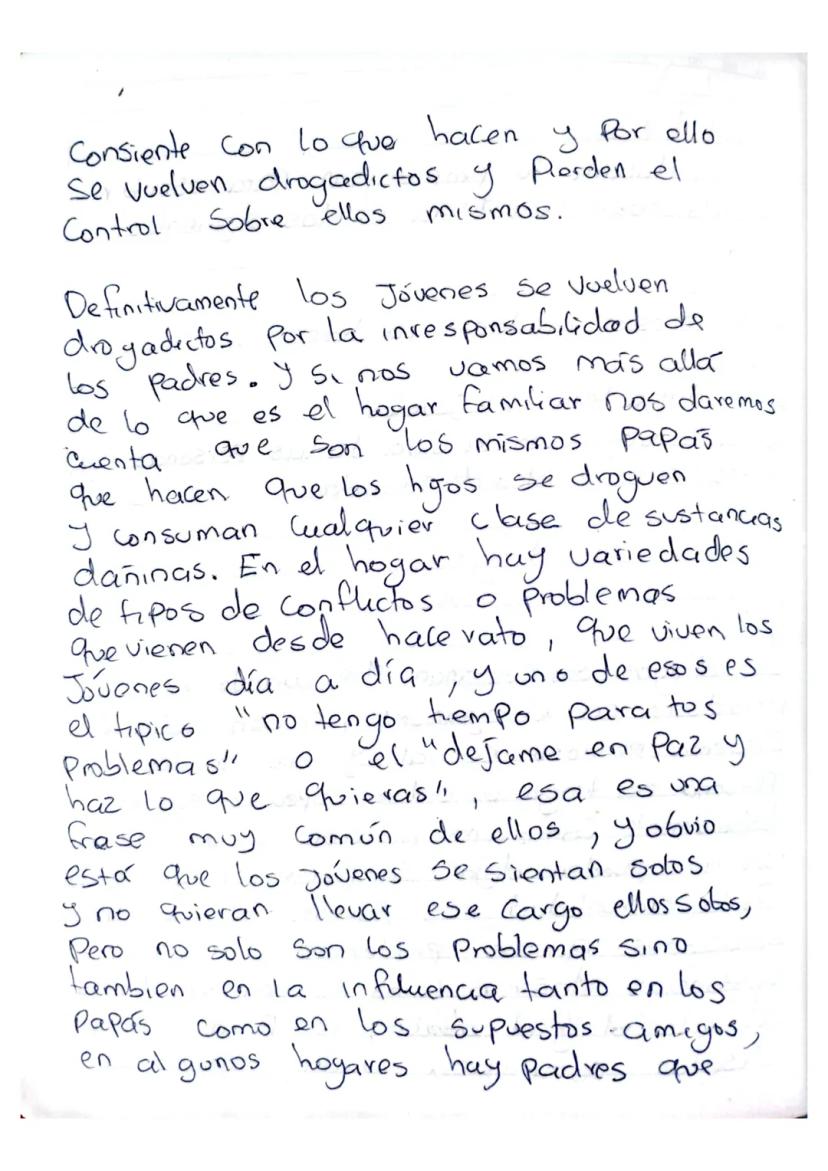 Consiente con lo que hacen y Por ello
Se vuelven drogadictos y Pierden el
Control Sobre ellos mismos.
Definitivamente los Jóvenes se vuelven
drogadictos por la inresponsabilidad de
los padres. y si nos vamos más allá
de lo que es el hogar familiar nos daremos
cuenta que son los mismos papás
que hacen que los hijos se droguen
y consuman cualquier clase de sustancias
dañinas. En el hogar hay variedades
de tipos de conflictos o problemas
que vienen desde hace rato, que viven los
Jóvenes día a día, y uno de esos es
el tipico "no tengo tiempo para tus
Problemas" o el "dejame en Paz y
haz lo que quieras", esa es una
frase muy común de ellos, y obvio
está que los jóvenes se sientan solos
y no quieran llevar ese cargo ellos solos,
Pero no solo son los problemas sino
tambien en la influencia tanto en los
Papás como en los supuestos amigos,
en algunos hogares hay padres que